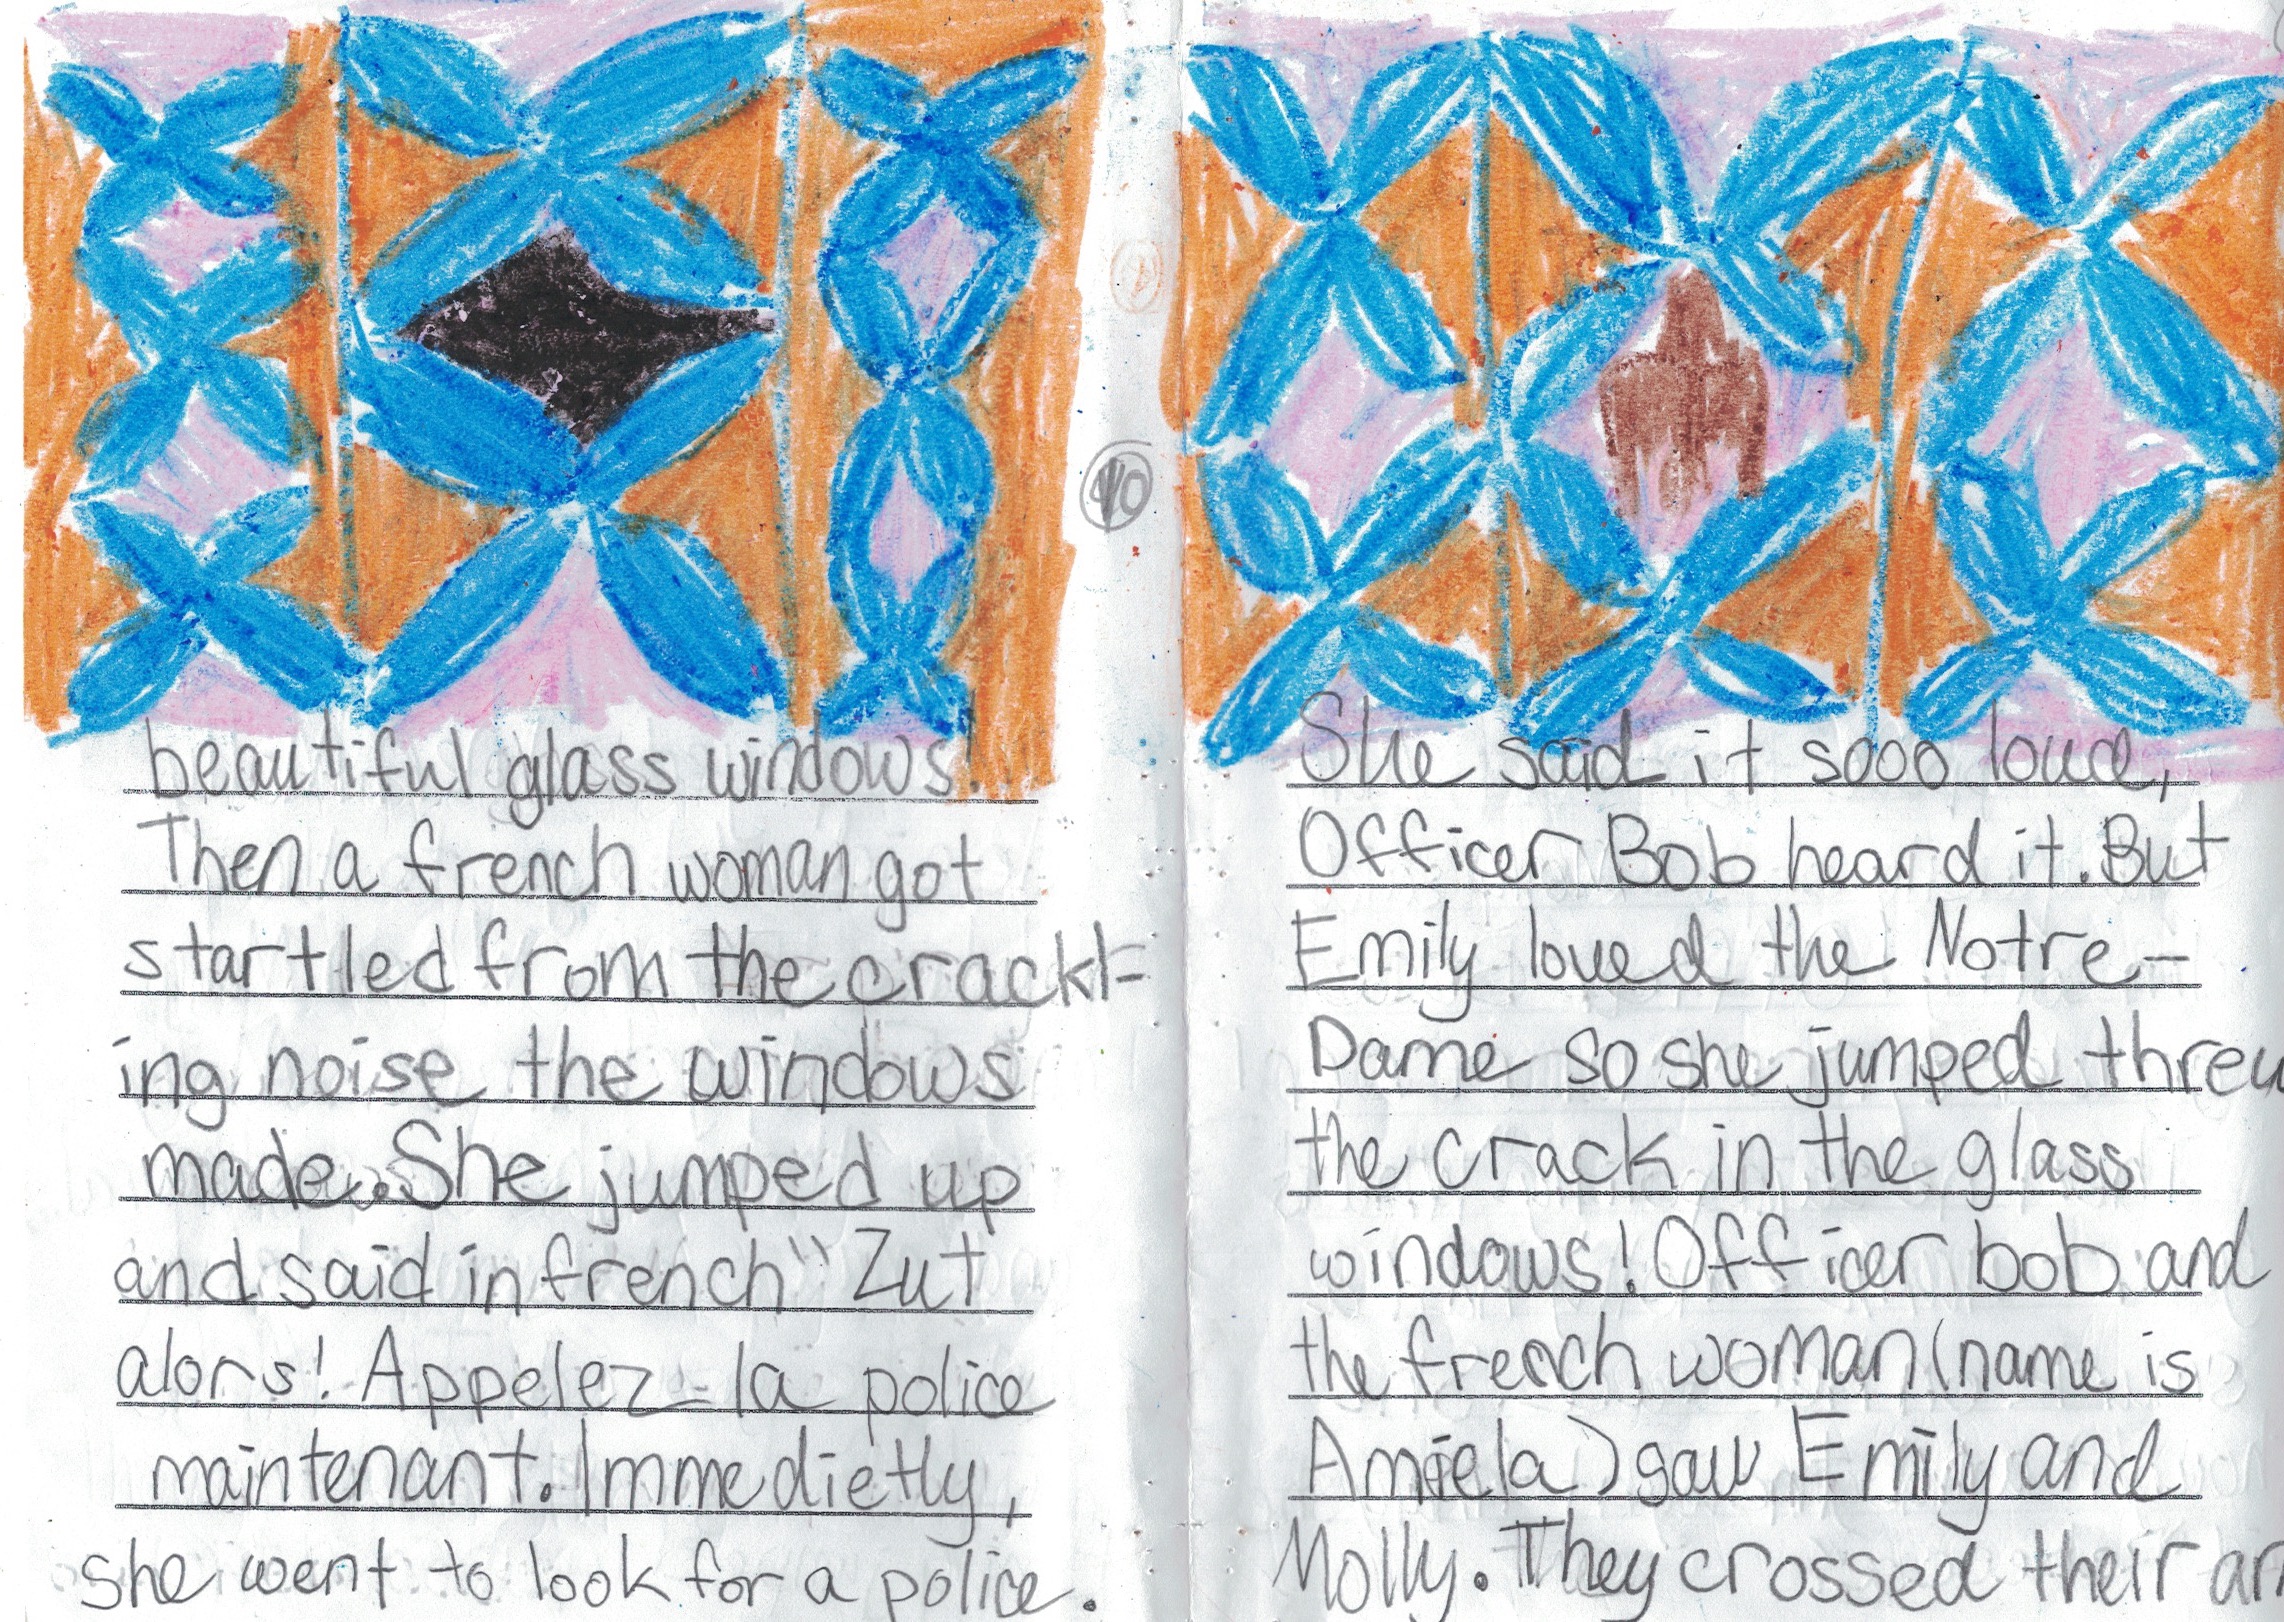 beautiful glass windows!
Then a french woman got
startled from the crackl-
ing noise the windows
made. She jumped up
and said in french" Zut
alors! Appelez-la police
maintenant. Immedietly,
she went to look for a police.
10
She said it sooo loud,
Officer Bob heard it. But
Emily loved the Notre-
Dame so she jumped threw
the crack in the glass
windows! Officer bob and
the french woman (name is
Amiela) saw Emily and
Molly. They crossed their